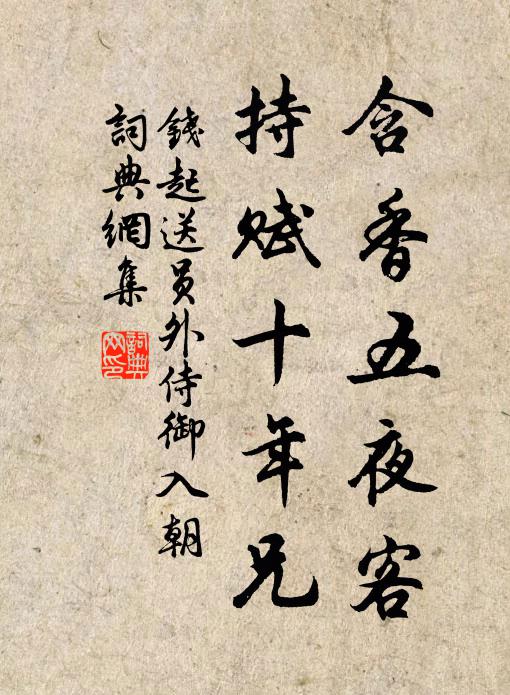 含香五夜客
持赋十年兄
錢起送员外侍御入朝
詞典網集
詞典
网印